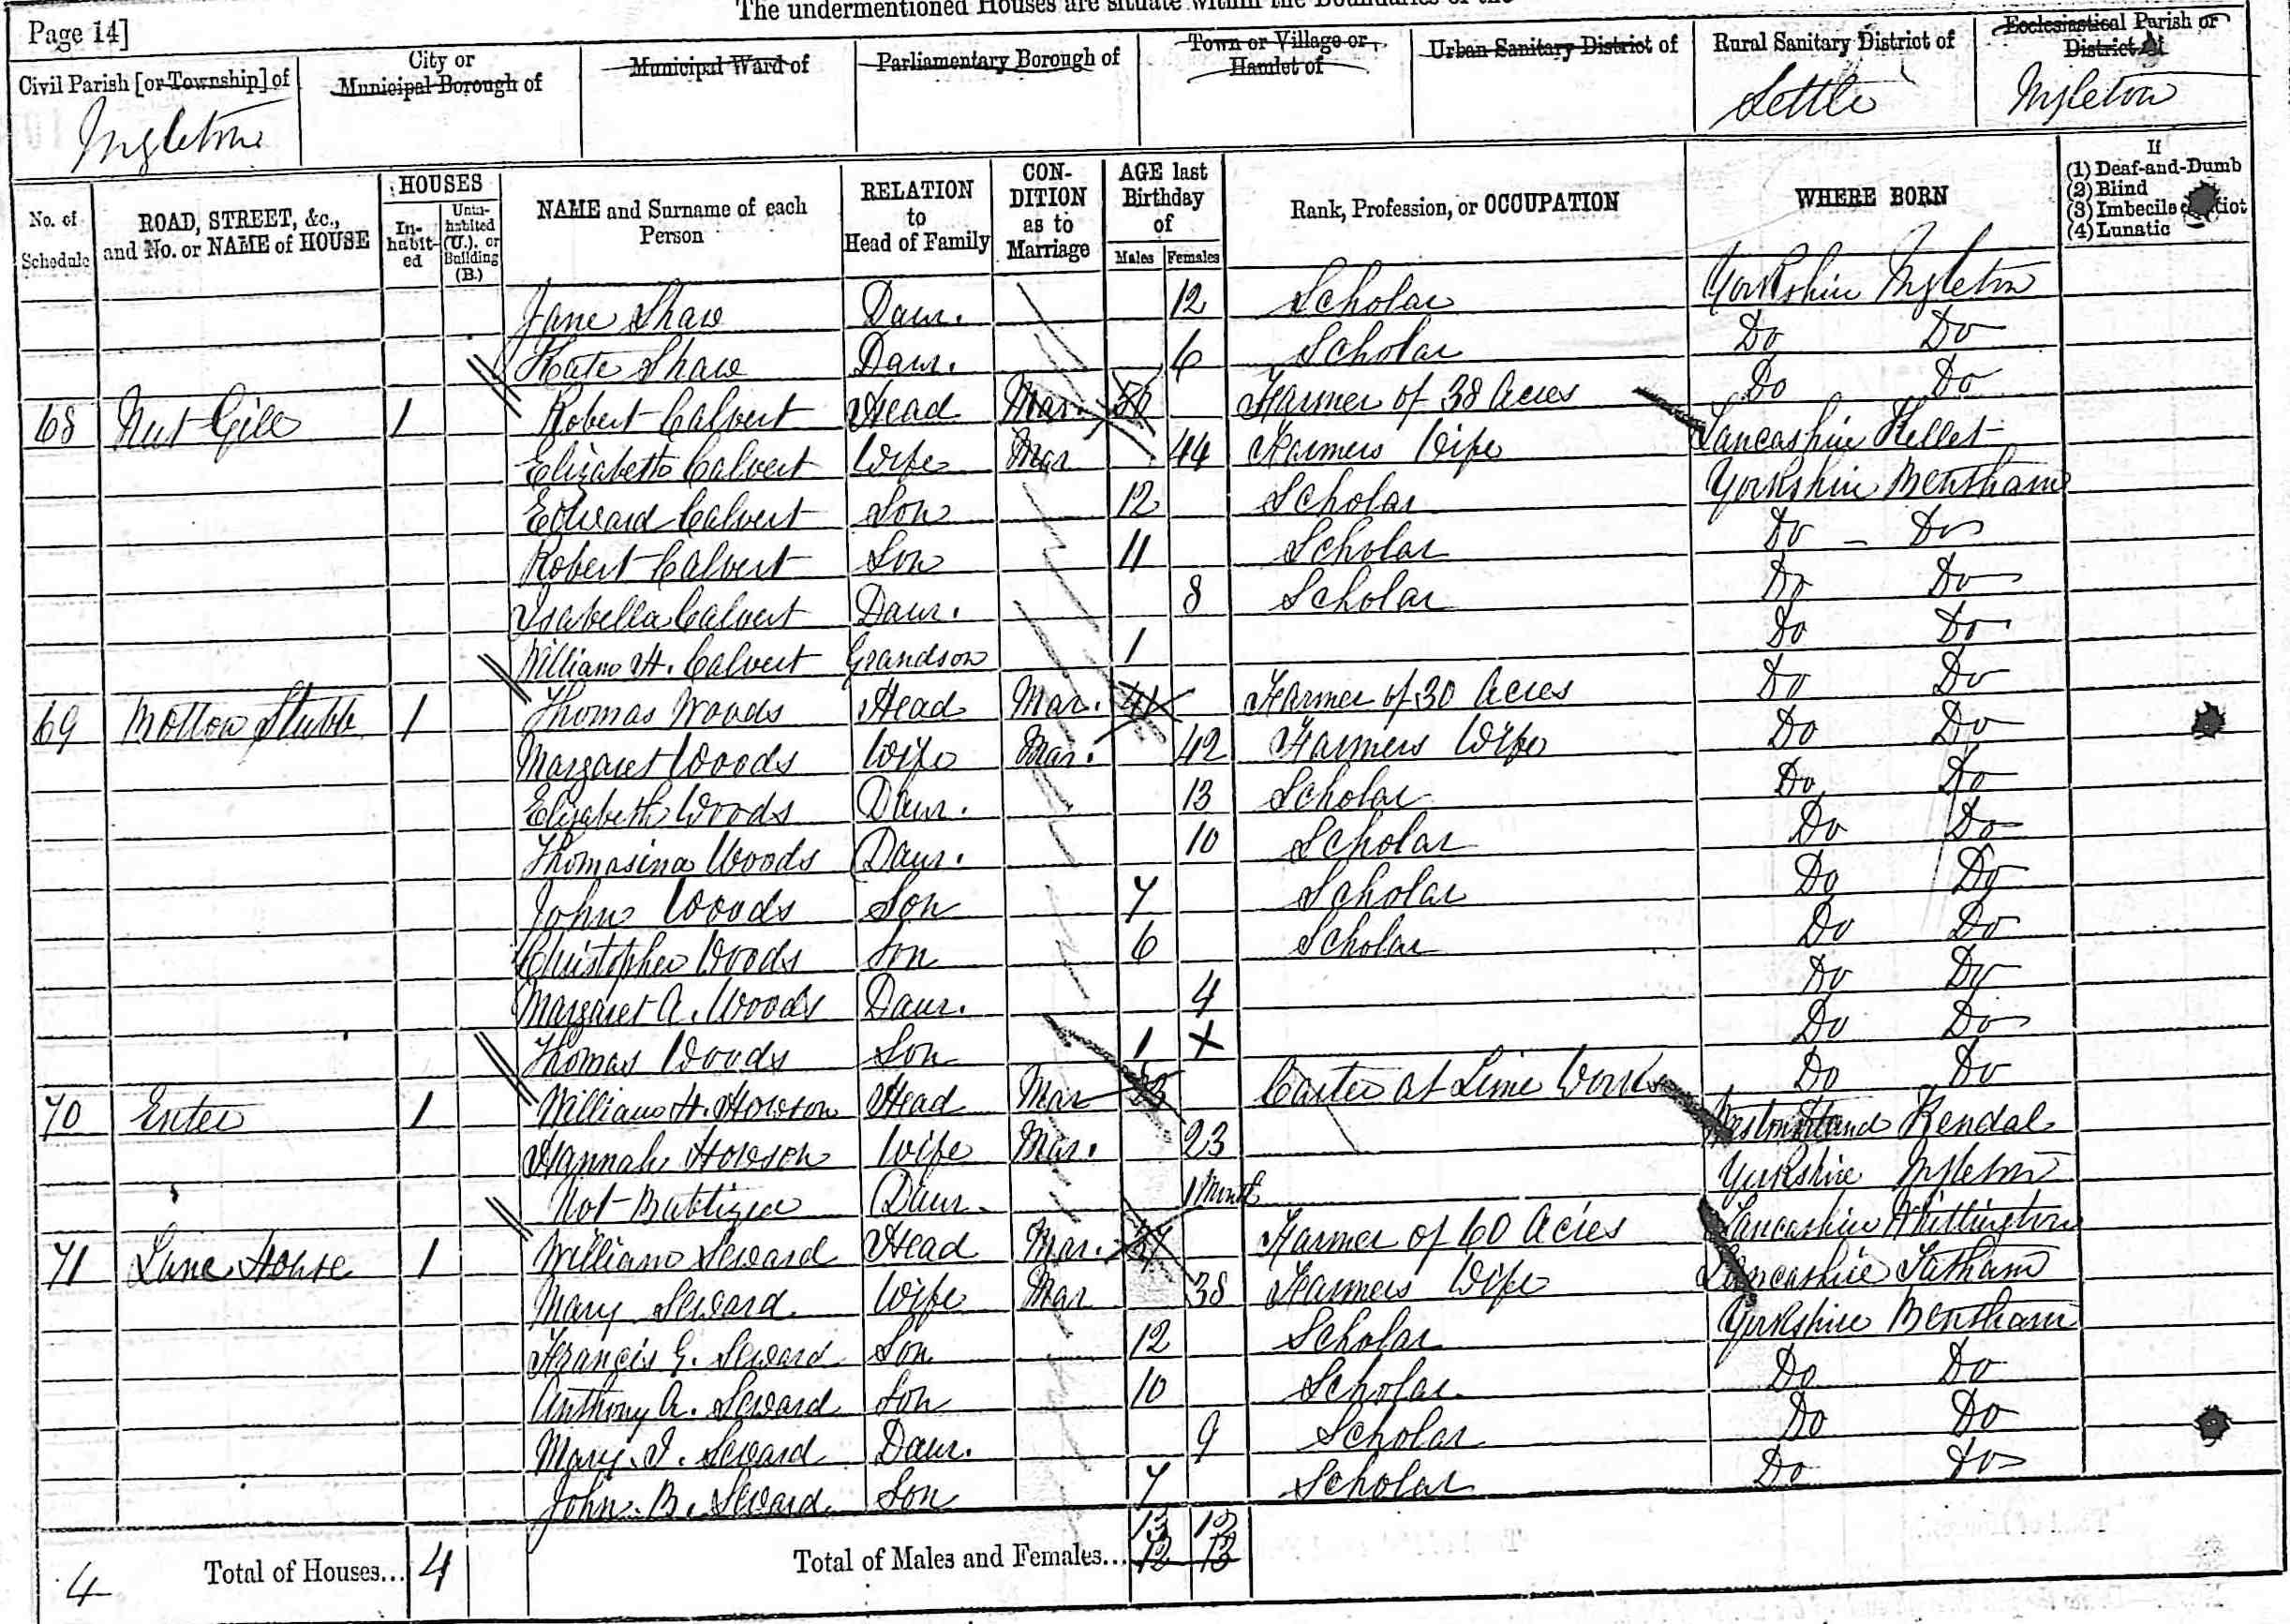 The undermentioned Houses are situate within the Boundaries of the
Page 14]
Civil Parish [or Township] of Ingleton
City or Municipal Borough of
Municipal Ward of
Parliamentary Borough of
Town or Village or Hamlet of
Urban Sanitary District of
Rural Sanitary District of Settle
Ecclesiastical Parish or District of Ingleton
No. of Schedule
ROAD, STREET, &c., and No. or NAME of HOUSE
HOUSES
In-habit-ed
Unin-habited (U.), or Building (B.)
NAME and Surname of each Person
RELATION to Head of Family
CON-DITION as to Marriage
AGE last Birthday of
Males Females
Rank, Profession, or OCCUPATION
WHERE BORN
If
(1) Deaf-and-Dumb
(2) Blind
(3) Imbecile or Idiot
(4) Lunatic
Jane Shaw Daur. 12 Scholar Yorkshire Ingleton
Kate Shaw Daur. 6 Scholar Do Do
68 Nut Gill 1 Robert Calvert Head Mar. Farmer of 38 Acres Do Do
Elizabeth Calvert Wife Mar 44 Farmers Wife Lancashire Kellet
Edward Calvert Son 12 Scholar Yorkshire Bentham
Robert Calvert Son 11 Scholar Do - Do
Isabella Calvert Daur. 8 Scholar Do Do
William H. Calvert Grandson 1 Do Do
69 Stubb 1 Thomas Woods Head Mar. 41 Farmer of 30 Acres Do Do
Margaret Woods Wife Mar. 42 Farmers Wife Do Do
Elizabeth Woods Daur. 13 Scholar Do Do
Thomasina Woods Daur. 10 Scholar Do Do
John Woods Son 7 Scholar Do Do
Christopher Woods Son 6 Scholar Do Do
Margaret A. Woods Daur. 4 Do Do
Thomas Woods Son 1 X Do Do
70 Enter 1 William H. Howson Head Mar Carter at Lime Works Do Do
Hannah Howson Wife Mar. 23 Westmorland Kendal
Not Babtized Daur. 1 Month Yorkshire Ingleton
71 Lane House 1 William Seward Head Mar. Farmer of 60 Acres Lancashire Whittington
Mary Seward Wife Mar 38 Farmers Wife Lancashire Tatham
Francis G. Seward Son 12 Scholar Yorkshire Bentham
Anthony A. Seward Son 10 Scholar Do Do
Mary J. Seward Daur. 9 Scholar Do Do
John B. Seward Son 7 Scholar Do Do
13 12
4 Total of Houses... 4 Total of Males and Females... 12 13